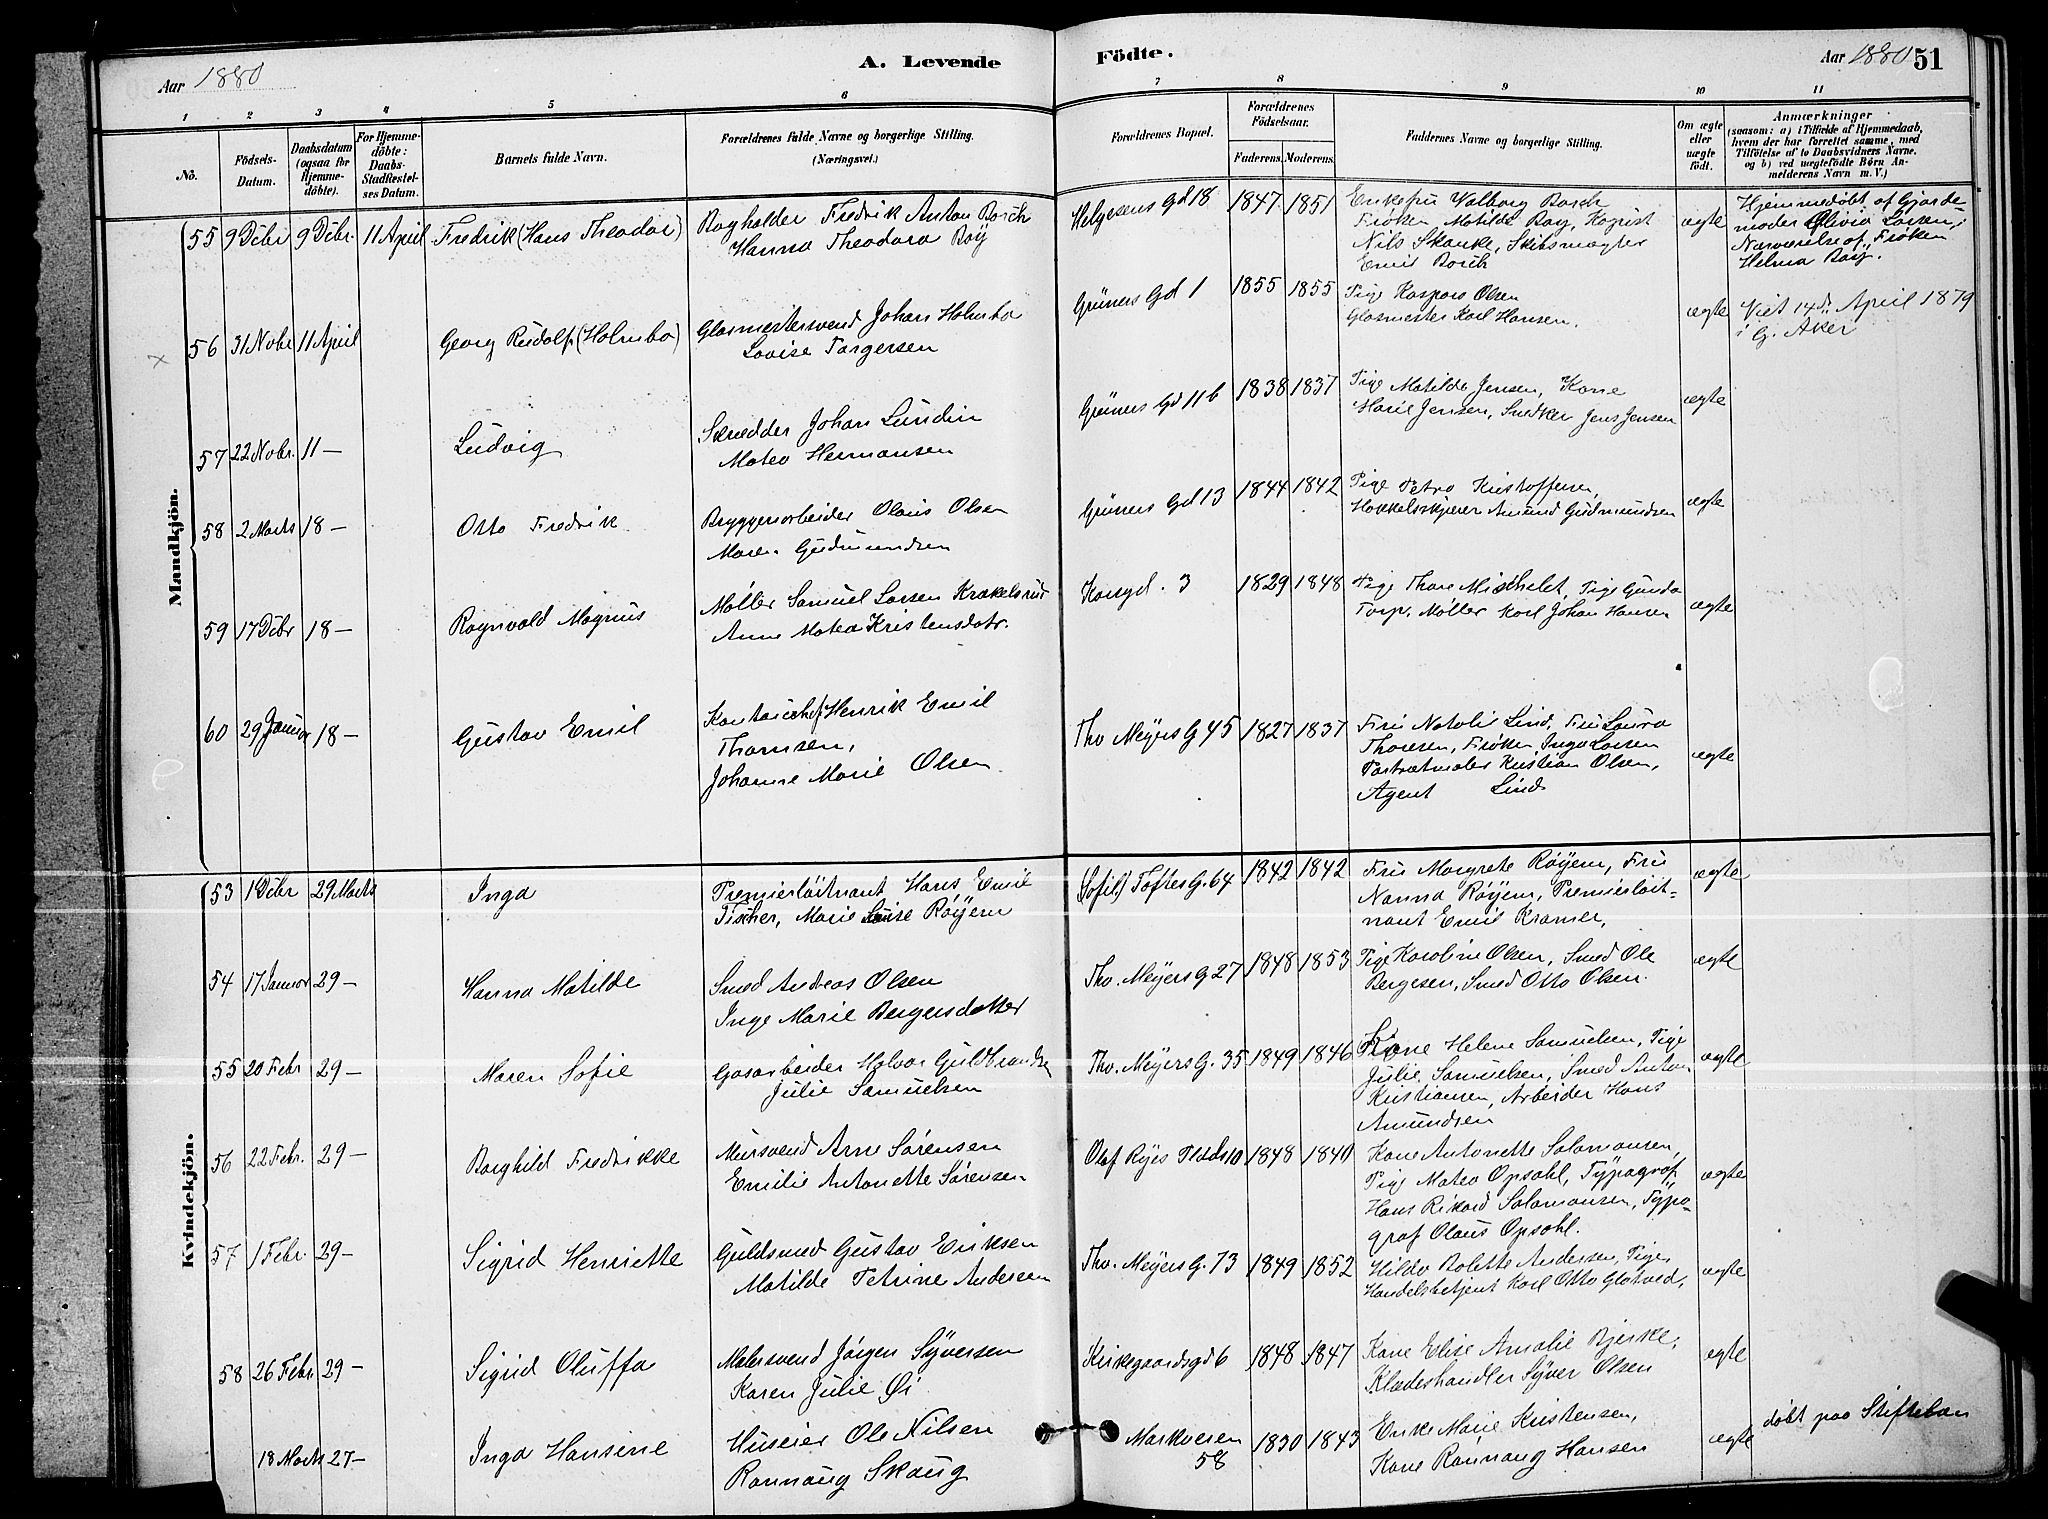 Aar 1880
A. Levende
Födte.
Aar 1880 51
1 2 3 4 5 6 7 8 9 10 11
No.
Födsels-
Datum.
Daabsdatum
(ogsaa for
Hjemme-
döbte).
For Hjemme-
döbte:
Daabs-
Stadfæstel-
ses Datum.
Barnets fulde Navn.
Forældrenes fulde Navne og borgerlige Stilling.
(Næringsvei.)
Forældrenes Bopæl.
Forældrenes
Födselsaar.
Faderens. Moderens.
Faddernes Navne og borgerlige Stilling.
Om ægte
eller
uægte
födt.
Anmærkninger
(saasom: a) i Tilfælde af Hjemmedaab,
hvem der har forrettet samme, med
Tilföielse af to Daabsvidners Navne,
og b) ved uegtefödte Börn An-
melderens Navn m. V.)
Mandkjön.
55 9 Dcbr 9 Dcbr. 11 April Fredrik (Hans Theodor)
Bogholder Fredrik Anton Borch
Hanna Theodora Boy
Helgesens Gd 18 1847 1851
Enkefru Valborg Borch
Frøken Matilde Boy, Kopist
Nils Skanke, Skibsmægler
Emil Borch
ægte
Hjemmedøbt af Gjorde
moder Olivia Larsen, i
Nærværelse af Frøken
Helma Boy.
56 31 Nobr 11 April Georg Rudolf (Holmbo)
Glasmestersvend Johan Holmbo
Lovise Torgersen
Grüners Gd 1 1855 1855
Pige Kaspara Olsen
Glasmester Karl Hansen.
ægte
Viet 14de April 1879
i G. Aker
57 22 Nobr. 11 — Ludvig
Skrædder Johan Lundin
Matea Hermansen
Grüners Gd 11 b 1838 1837
Pige Matilde Jensen, Kone
Marie Jensen, Snedker Jens Jensen
ægte
58 2 Marts 18 — Otto Fredrik
Bryggeriarbeider Olaus Olsen
Maren Gudmundsen
Grüners Gd 13 1844 1842
Pige Petra Kristoffersen,
Amund Gudmundsen
ægte
59 17 Dcbr 18 — Ragnvald Magnus
Møller Samuel Larsen Krakelsrud
Anne Matea Kristensdatr.
Korsgd. 3 1829 1848
Pige Thora Mischelet, Pige Gunda
Torp, Møller Karl Johan Hansen
ægte
60 29 Januar 18 — Gustav Emil
Kontorchef Henrik Emil
Thomsen,
Johanne Marie Olsen
Thv Meyers G 45 1827 1837
Fru Natalie Lind, Fru Laura
Thoresen, Frøken Inga Larsen
Portrætmaler Kristian Olsen,
Agent Lind
ægte
Kvindekjön.
53 1 Dcbr 29 Marts Inga
Premierløitnant Hans Emil
Fischer, Marie Louise Røyem
(Sofil) Toftes G. 64 1842 1842
Fru Margrete Røyem, Fru
Nanna Røyem, Premierløit-
nant Emil Kramer,
ægte
54 17 Januar 29 — Hanna Matilde
Smed Andreas Olsen
Inge Marie Bergersdatter
Thv. Meyers G 27 1848 1853
Pige Karoline Olsen, Smed Ole
Bergesen, Smed Otto Olsen.
ægte
55 20 Febr 29 — Maren Sofie
Gasarbeider Halvor Guldbrandsen
Julie Samuelsen
Thv. Meyers G. 35 1849 1846
Kone Helene Samuelsen, Pige
Julie Samuelsen, Smed Anton
Kristiansen, Arbeider Hans
Amundsen
ægte
56 22 Febr. 29 — Borghild Fredrikke
Mursvend Arne Sørensen
Emilie Antonette Sørensen
Olaf Ryes Plads 10 1848 1840
Kone Antonette Salomonsen,
Pige Matea Opsahl, Typograf
Hans Rikard Salomonsen, Typo-
graf Olaus Opsahl.
ægte
57 1 Febr. 29 — Sigrid Henriette
Guldsmed Gustav Eriksen
Matilde Petrine Andersen
Thv. Meyers G. 73 1849 1852
Hilda Bolette Andersen, Pige,
Handelsbetjent Karl Otto Glatved,
ægte
58 26 Febr 29 — Sigrid Oluffa
Malersvend Jørgen Syversen
Karen Julie Øi
Kirkegaardsgd 6 1848 1847
Kone Elise Amalie Bjerke,
Klædeshandler Syver Olsen
ægte
18 Marts 27 — Inga Hansine
Huseier Ole Nilsen
Rannaug Skaug
Markveien
58
1830 1843
Enke Marie Kristensen,
Kone Rannaug Hansen
ægte
døbt paa Stiftelsen